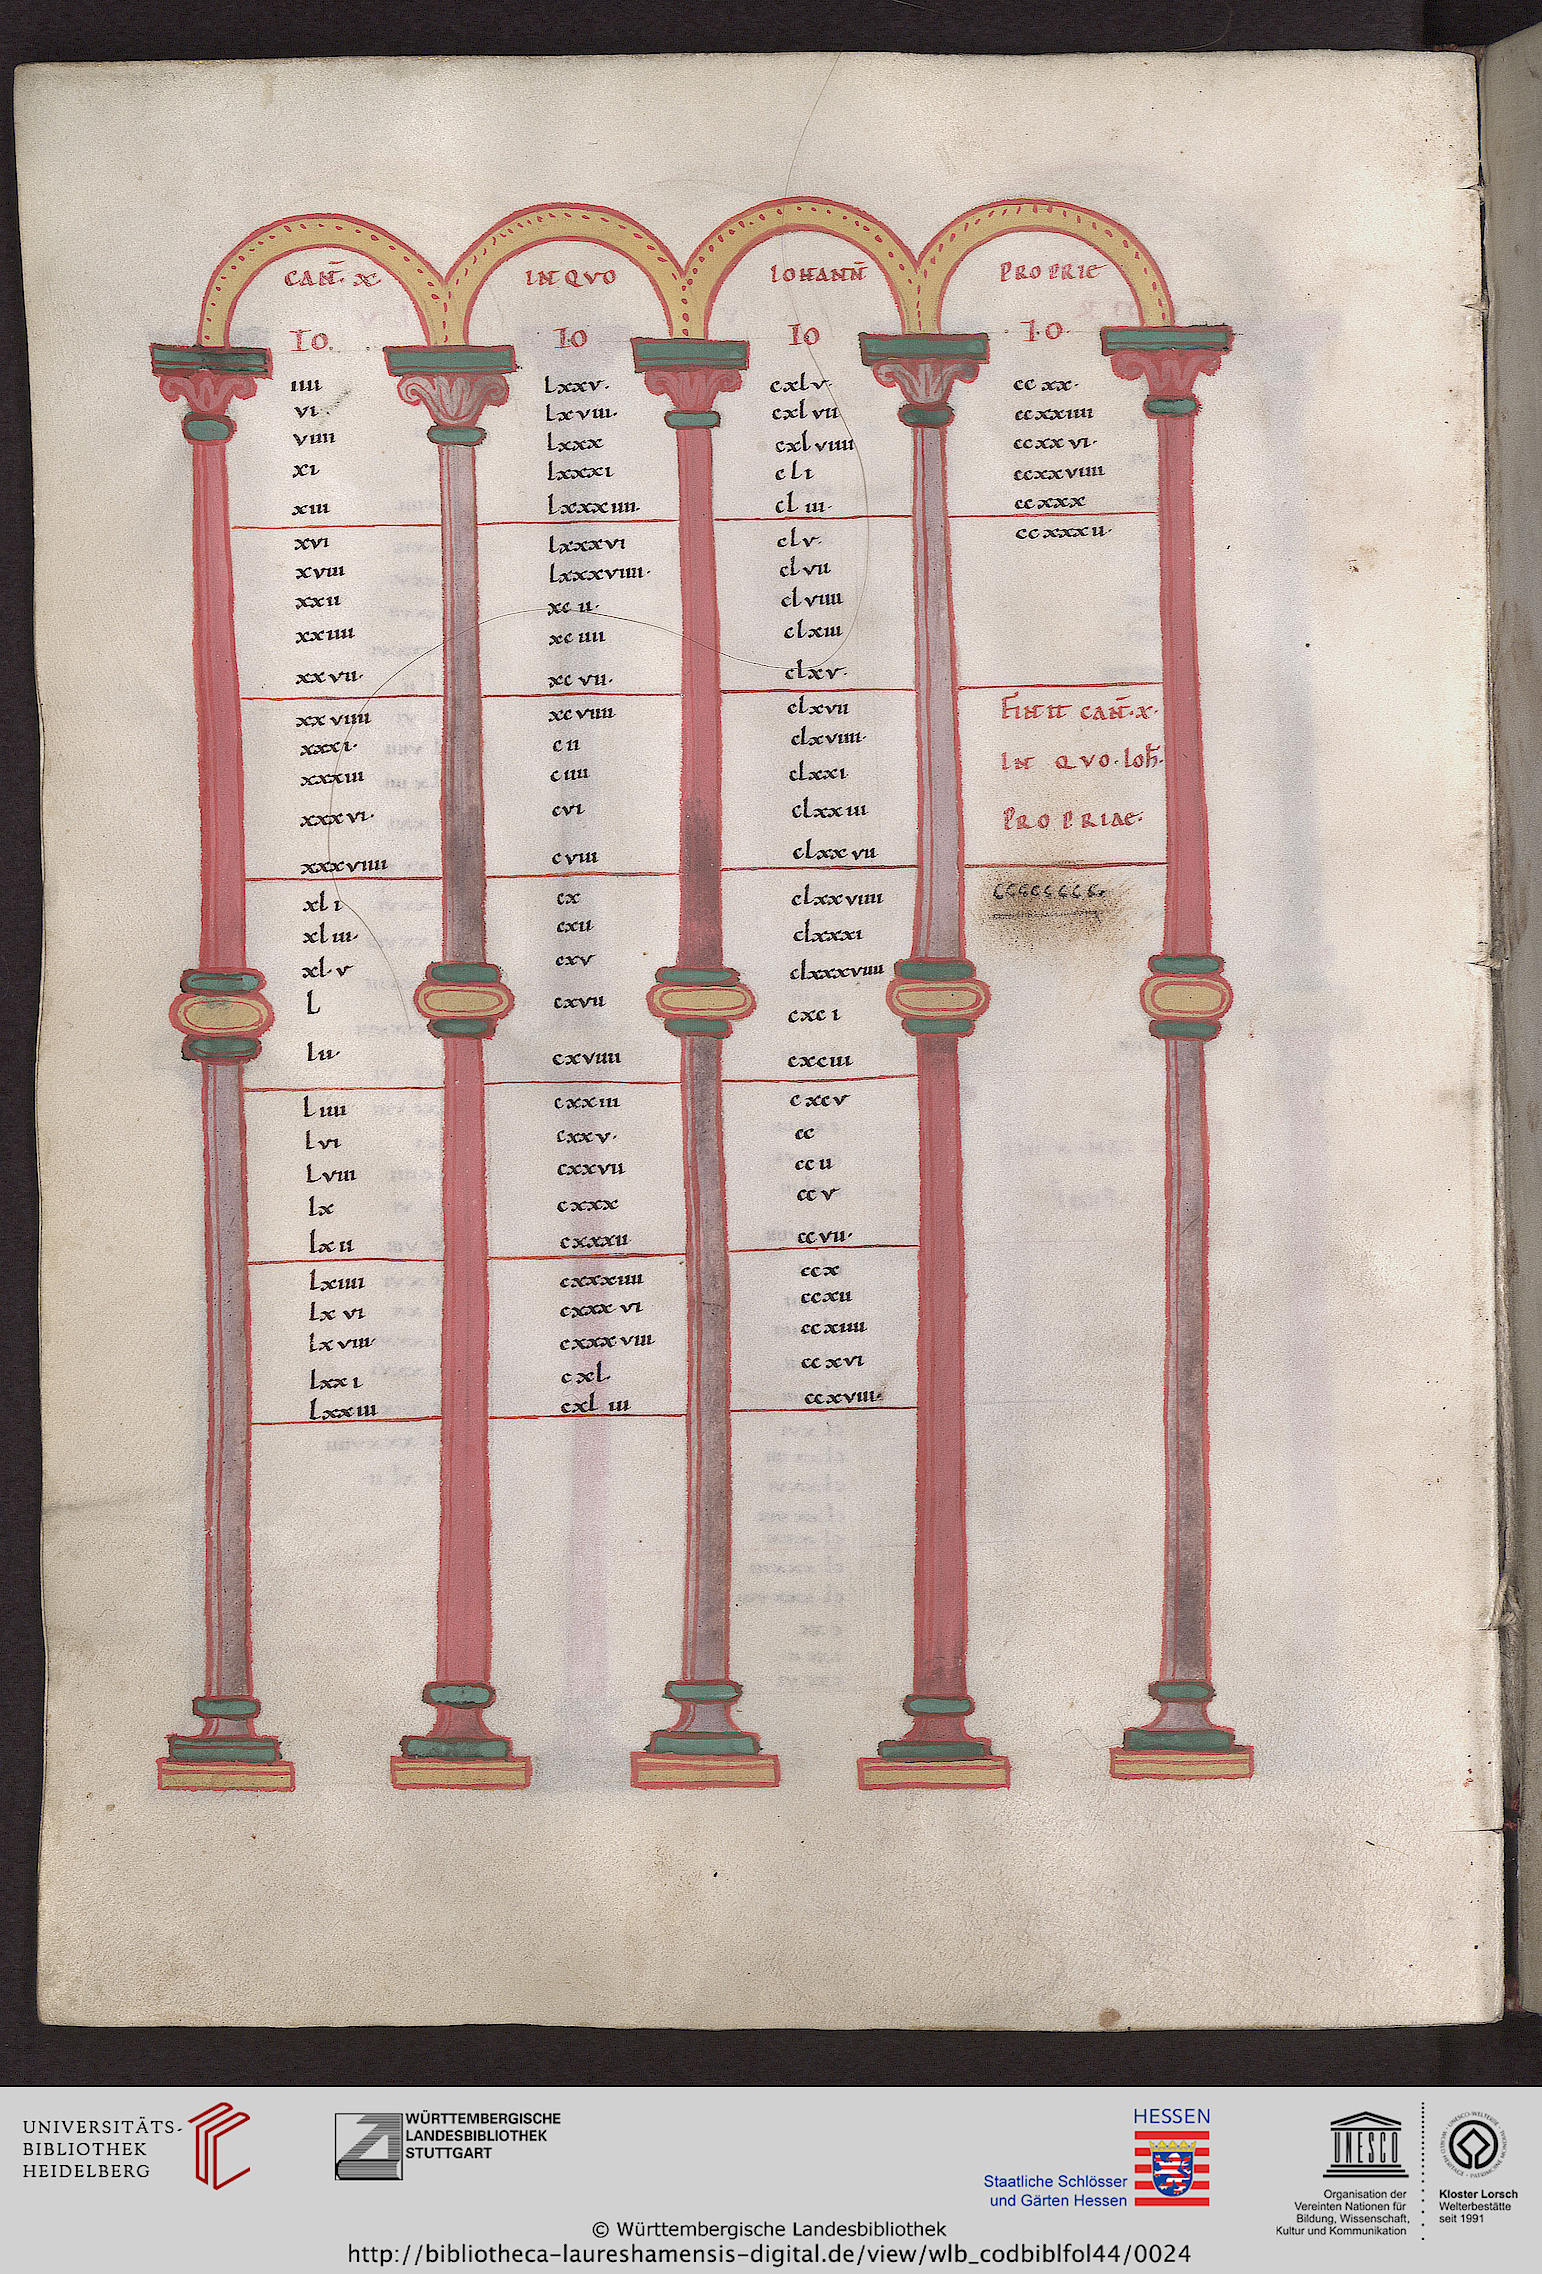 CAN̄. X
IN QVO
IOHANN̄
PROPRIE
IO.
IO
IO
IO
iiii
vi
viiii
xi
xiii
xvi
xviii
xxii
xxiiii
xxvii.
xxviiii
xxxi.
xxxiii
xxxvi.
xxxviiii
xli
xliii.
xlv
L
Lii.
Liiii
Lvi
Lviii
lx
lxii
lxiiii
lxvi
lxviii.
lxxi
lxxiii
lxxv.
lxviii.
lxxx
lxxxi
lxxxiiii.
lxxxvi
lxxxviiii.
xcii.
xciiii
xcvii.
xcviiii
cii
ciiii
cvi
cviii
cx
cxii
cxv
cxvii
cxviiii
cxxiii
cxxv.
cxxvii
cxxx
cxxxii
cxxxiiii
cxxxvi
cxxxviii
cxl.
cxliii
cxlv.
cxlvii
cxlviiii
cli
cliii.
clv.
clvii
clviiii
clxiii
clxv.
clxvii
clxviiii.
clxxi
clxxiii
clxxvii
clxxviiii
clxxxi
clxxxviiii
cxci
cxciii
cxcv
cc
ccii
ccv
ccvii.
ccx
ccxii
ccxiiii
ccxvi
ccxviii.
ccxx.
ccxxiiii
ccxxvi.
ccxxviiii
ccxxx
ccxxxii.
FINIT CAN̄.X.
IN QVO. Ioh̄.
PROPRIAE.
UNIVERSITÄTS-
BIBLIOTHEK
HEIDELBERG
WÜRTTEMBERGISCHE
LANDESBIBLIOTHEK
STUTTGART
HESSEN
Staatliche Schlösser
und Gärten Hessen
UNESCO
Organisation der
Vereinten Nationen für
Bildung, Wissenschaft,
Kultur und Kommunikation
Kloster Lorsch
Welterbestätte
seit 1991
© Württembergische Landesbibliothek
http://bibliotheca-laureshamensis-digital.de/view/wlb_codbiblfol44/0024